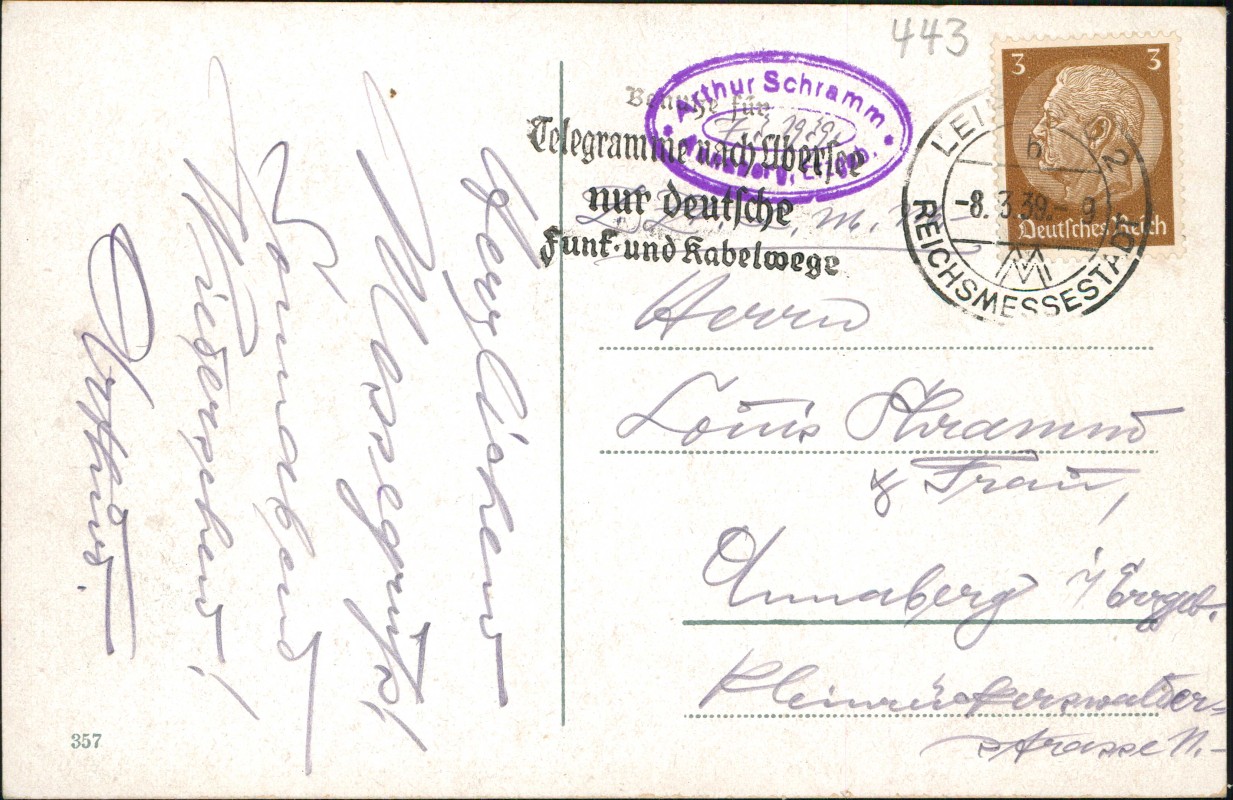 443
Benutze für
Telegramme nach Übersee
nur deutsche
Funk- und Kabelwege
Arthur Schramm
7.3.1939.
Annaberg, Erzgeb.
LEIPZIG C 2
b
-8.3.39.-9
REICHSMESSESTADT
3 3
Deutsches Reich
Herrn
Louis Schramm
& Frau,
Annaberg i/Erzgeb.
Kleinrückerswalder-
strasse 11.-
Herzlichen
Messegruß!
Sonnabend
Wiedersehen!
Arthur.
357